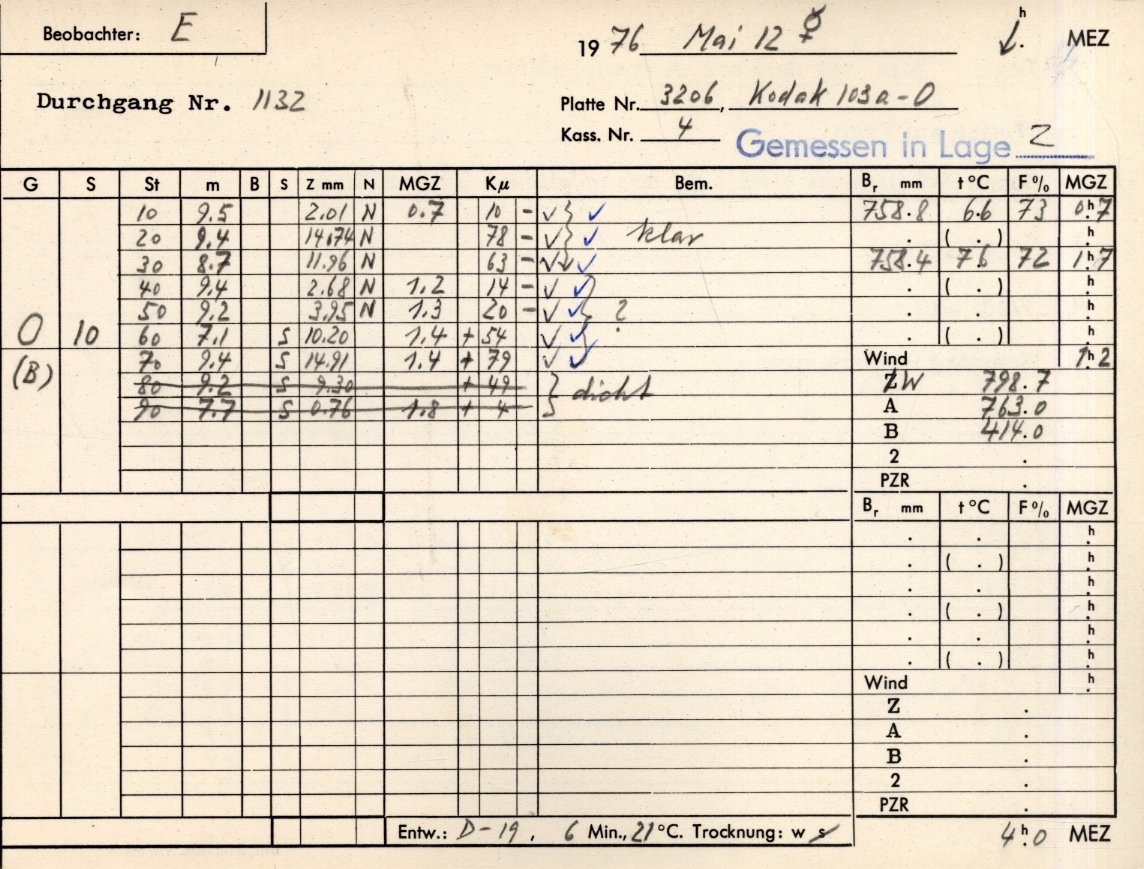 Beobachter: E
1976 Mai 12 ☿ h . MEZ
Durchgang Nr. 1132
Platte Nr. 3206, Kodak 103a-O
Kass. Nr. 4
Gemessen in Lage 2
G S St m B S Z mm N MGZ Kμ Bem. Br mm t °C F % MGZ
10 9.5 2.01 N 0.7 10 - ✓ } ✓ 758.8 6.6 73 0h.7
20 9.4 14.74 N 78 - ✓ } ✓ klar . ( . ) h.
30 8.7 11.96 N 63 - ✓ ✓ ✓ 758.4 7.6 72 1h.7
40 9.4 2.68 N 1.2 14 - ✓ ✓ } . ( . ) h.
50 9.2 3.95 N 1.3 20 - ✓ ✓ } ? . . h.
0 10 60 7.1 S 10.20 1.4 + 54 ✓ ✓ } . ( . ) h.
70 9.4 S 14.91 1.4 + 79 ✓ ✓ Wind 1h.2
(B) 80 9.2 S 9.30 + 49 } dicht ZW 798.7
90 7.7 S 0.76 1.8 + 4 A 763.0
B 414.0
2 .
PZR .
Br mm t °C F % MGZ
. . h.
. ( . ) h.
. . h.
. ( . ) h.
. . h.
. ( . ) h.
Wind h.
Z .
A .
B .
2 .
PZR .
Entw.: D-19, 6 Min., 21 °C. Trocknung: w s 4h.0 MEZ